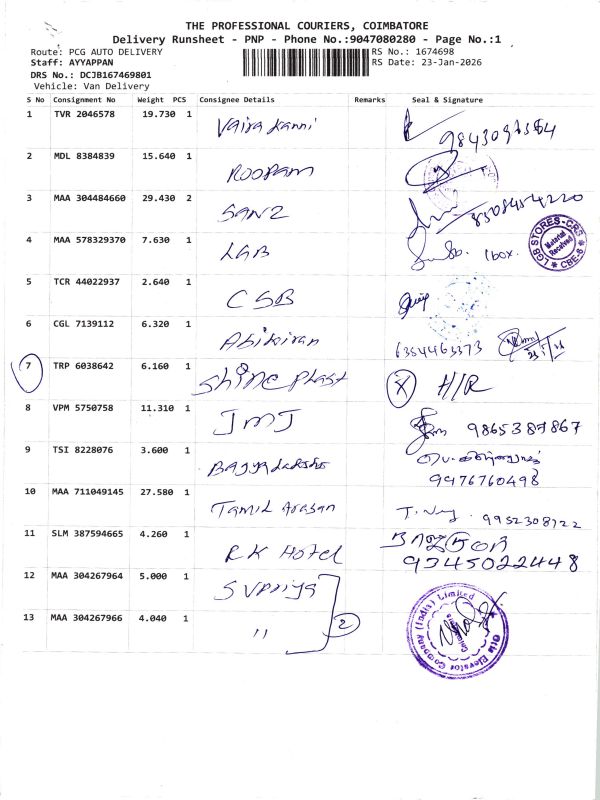 THE PROFESSIONAL COURIERS, COIMBATORE
Delivery Runsheet - PNP - Phone No.:9047080280 - Page No.:1
Route: PCG AUTO DELIVERY
RS No.: 1674698
Staff: AYYAPPAN
RS Date: 23-Jan-2026
DRS No.: DCJB167469801
Vehicle: Van Delivery
S No Consignment No Weight PCS Consignee Details Remarks Seal & Signature
1 TVR 2046578 19.730 1 Vaira Kanni
2 MDL 8384839 15.640 1 ROOPAM
3 MAA 304484660 29.430 2 SANZ
4 MAA 578329370 7.630 1 LGB 1 box.
LGB STORES-CRS
Material Received
CBE-6
5 TCR 44022937 2.640 1 CSB
6 CGL 7139112 6.320 1 Abikiran 6354463373
7 TRP 6038642 6.160 1 Shine Plast X H/R
8 VPM 5750758 11.310 1 JMJ 9865387867
9 TSI 8228076 3.600 1 9976760498
10 MAA 711049145 27.580 1 Tamil Arasan 9952308122
11 SLM 387594665 4.260 1 RK Hotel 9345022448
12 MAA 304267964 5.000 1
13 MAA 304267966 4.040 1 " 2
Otis Elevator Company (India) Limited